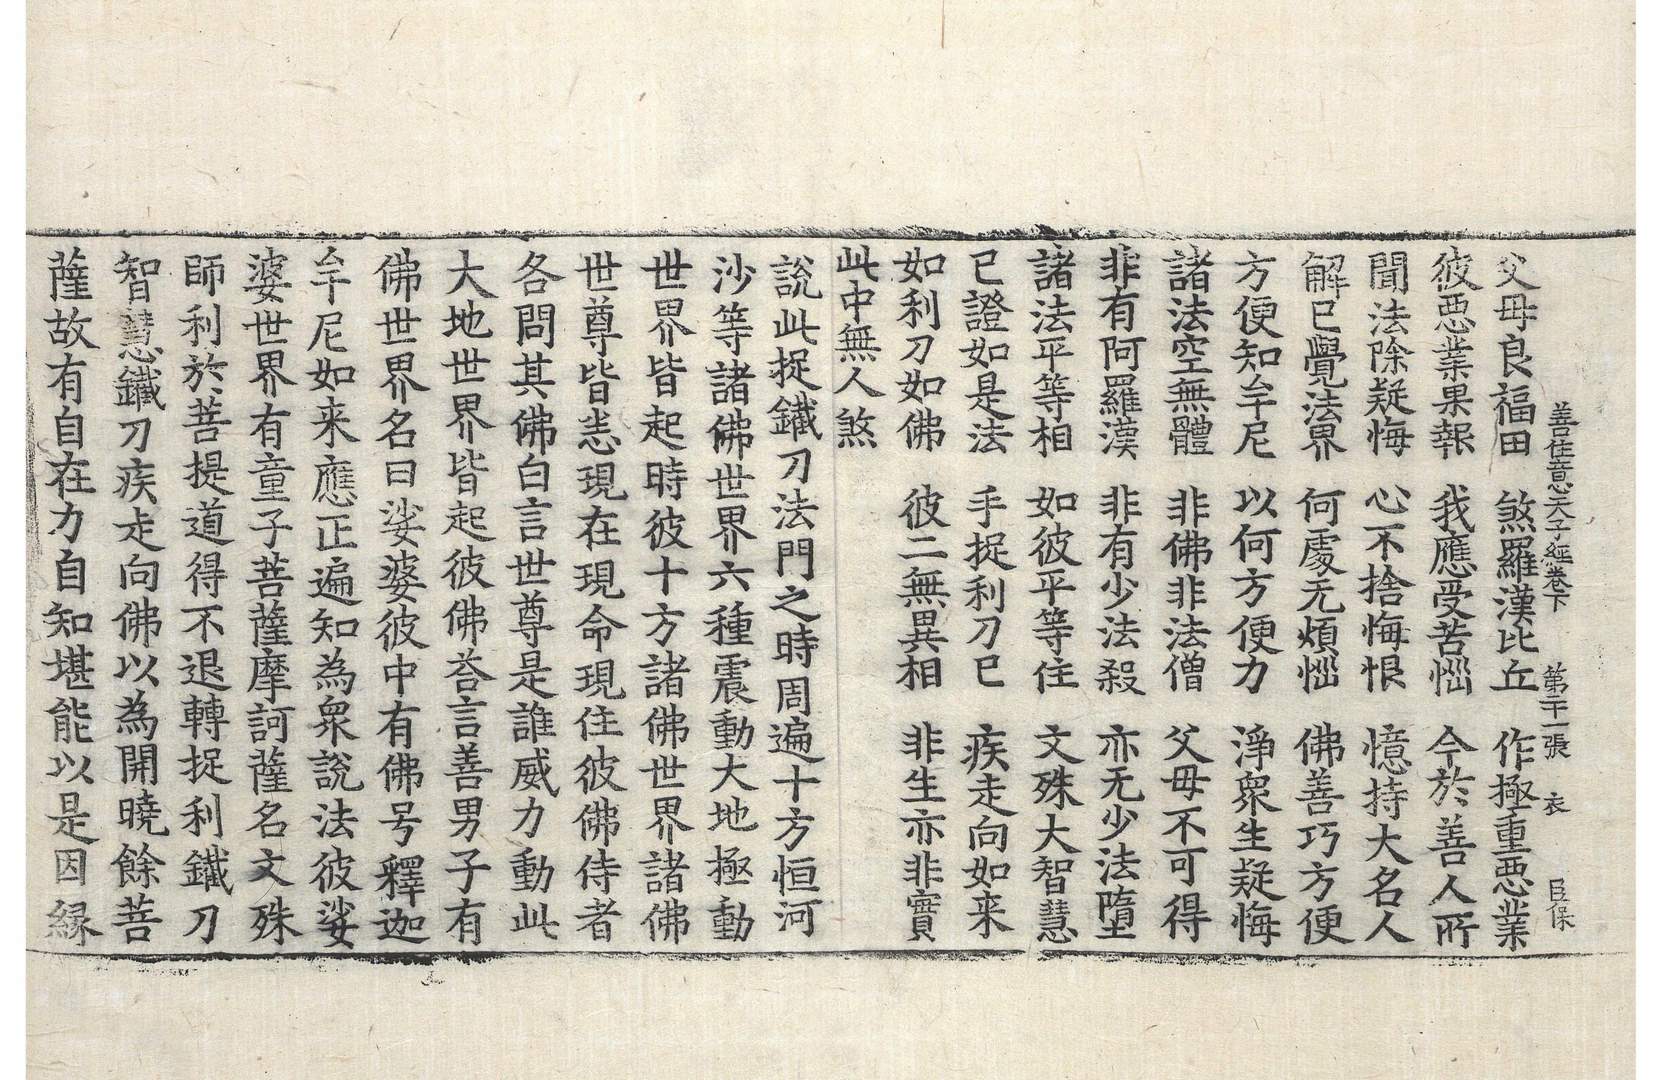 善住意天子經卷下　第二十一張　衣　巨保
父母良福田　煞羅漢比丘　作極重惡業
彼惡業果報　我應受苦惱　今於善人所
聞法除疑悔　心不捨悔恨　憶持大名人
解已覺法界　何處无煩惱　佛善巧方便
方便知牟尼　以何方便力　淨衆生疑悔
諸法空無體　非佛非法僧　父母不可得
非有阿羅漢　非有少法殺　亦无少法墮
諸法平等相　如彼平等住　文殊大智慧
已證如是法　手捉利刀已　疾走向如来
如利刀如佛　彼二無異相　非生亦非實
此中無人煞
說此捉鐵刀法門之時周遍十方恒河
沙等諸佛世界六種震動大地極動
世界皆起時彼十方諸佛世界諸佛
世尊皆悉現在現命現住彼佛侍者
各問其佛白言世尊是誰威力動此
大地世界皆起彼佛荅言善男子有
佛世界名曰娑婆彼中有佛号釋迦
牟尼如来應正遍知為衆說法彼娑
婆世界有童子菩薩摩訶薩名文殊
師利於菩提道得不退轉捉利鐵刀
智慧鐵刀疾走向佛以為開曉餘菩
薩故有自在力自知堪能以是因緣